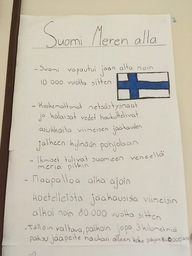 Suomi Meren alla
- Suomi vapautui jään alta noin
10 000 vuotta sitten
- Kookkaimmat metsästäjämaat
ja kalaisat vedet houkuttelivat
asukkaita viimeisen jääkauden
jälkeen kylmään pohjolaan
- Ihmiset tulivat Suomeen veneellä
meriä pitkin
- Maapalloa alkoi ajoin
koetellelota jääkausista viimeisin
alkoi noin 80 000 vuotta sitten
- Tällöin valtava, paikoin jopa 3 kilometriä
paksu jääpeite